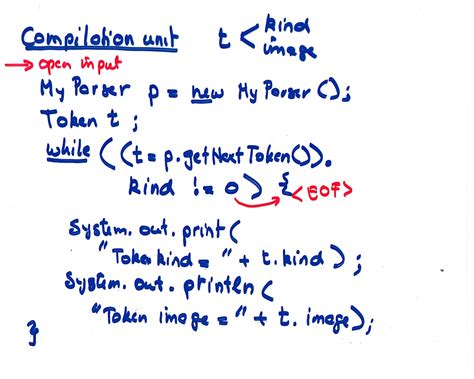 Compilation unit t < kind
image
→ open input
My Parser p = new My Parser ();
Token t ;
while ((t = p.getNext Token()).
kind != 0) { <EOF>
System.out.print (
"Token kind = " + t.kind ) ;
System.out.println (
"Token image = " + t.image);
}